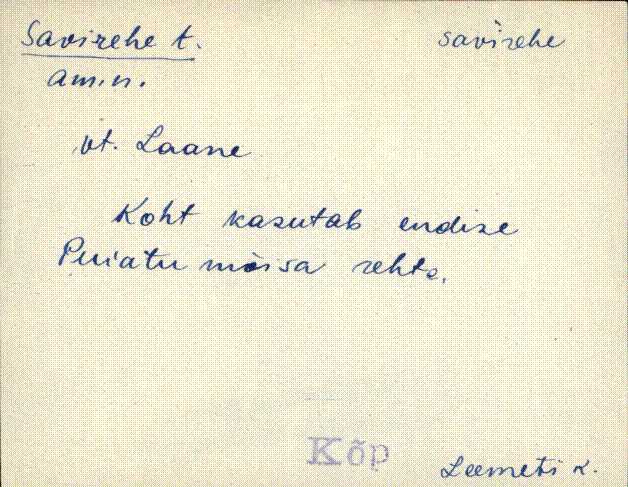 Savirehe t. savirehe
am.n.
vt. Laane
Koht kasutab endise
Puiatu mõisa rehte.
Kõp
Leemeti k.